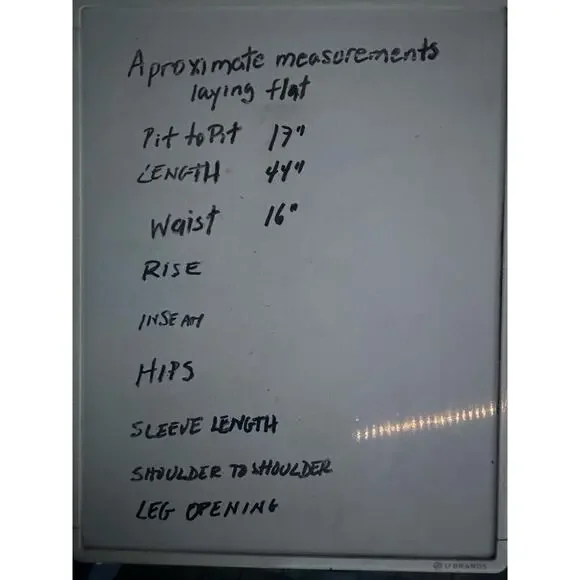 Aproximate measurements
laying flat
Pit to Pit 17"
LENGTH 44"
Waist 16"
RISE
INSEAM
HIPS
SLEEVE LENGTH
SHOULDER TO SHOULDER
LEG OPENING
U BRANDS